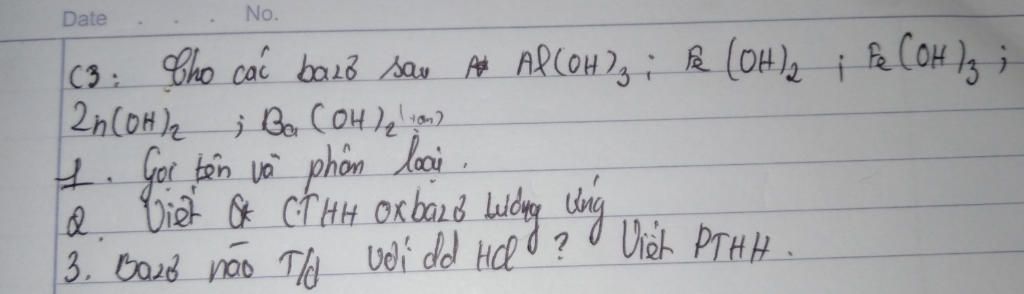 Date . . . No.
C3: Cho các bazơ sau Al(OH)3; Fe(OH)2; Fe(OH)3;
Zn(OH)2; Ba(OH)2 (tan)
1. Gọi tên và phân loại.
2. Viết CTHH oxbazơ tương ứng
3. Bazơ nào T/d với dd HCl? Viết PTHH.